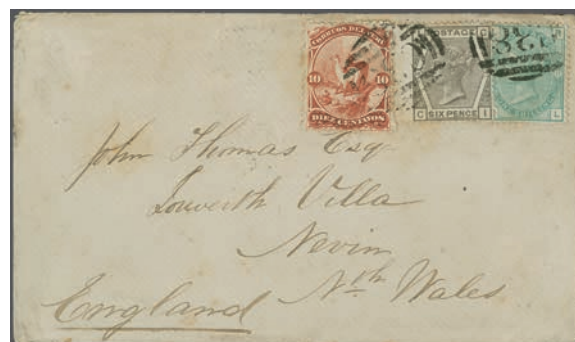 CORREOS DEL PERU
10 10
DIEZ CENTAVOS
POSTAGE
C SIX PENCE I
L
John Thomas Esq
Iorwerth Villa
Nevin
Nth Wales
England